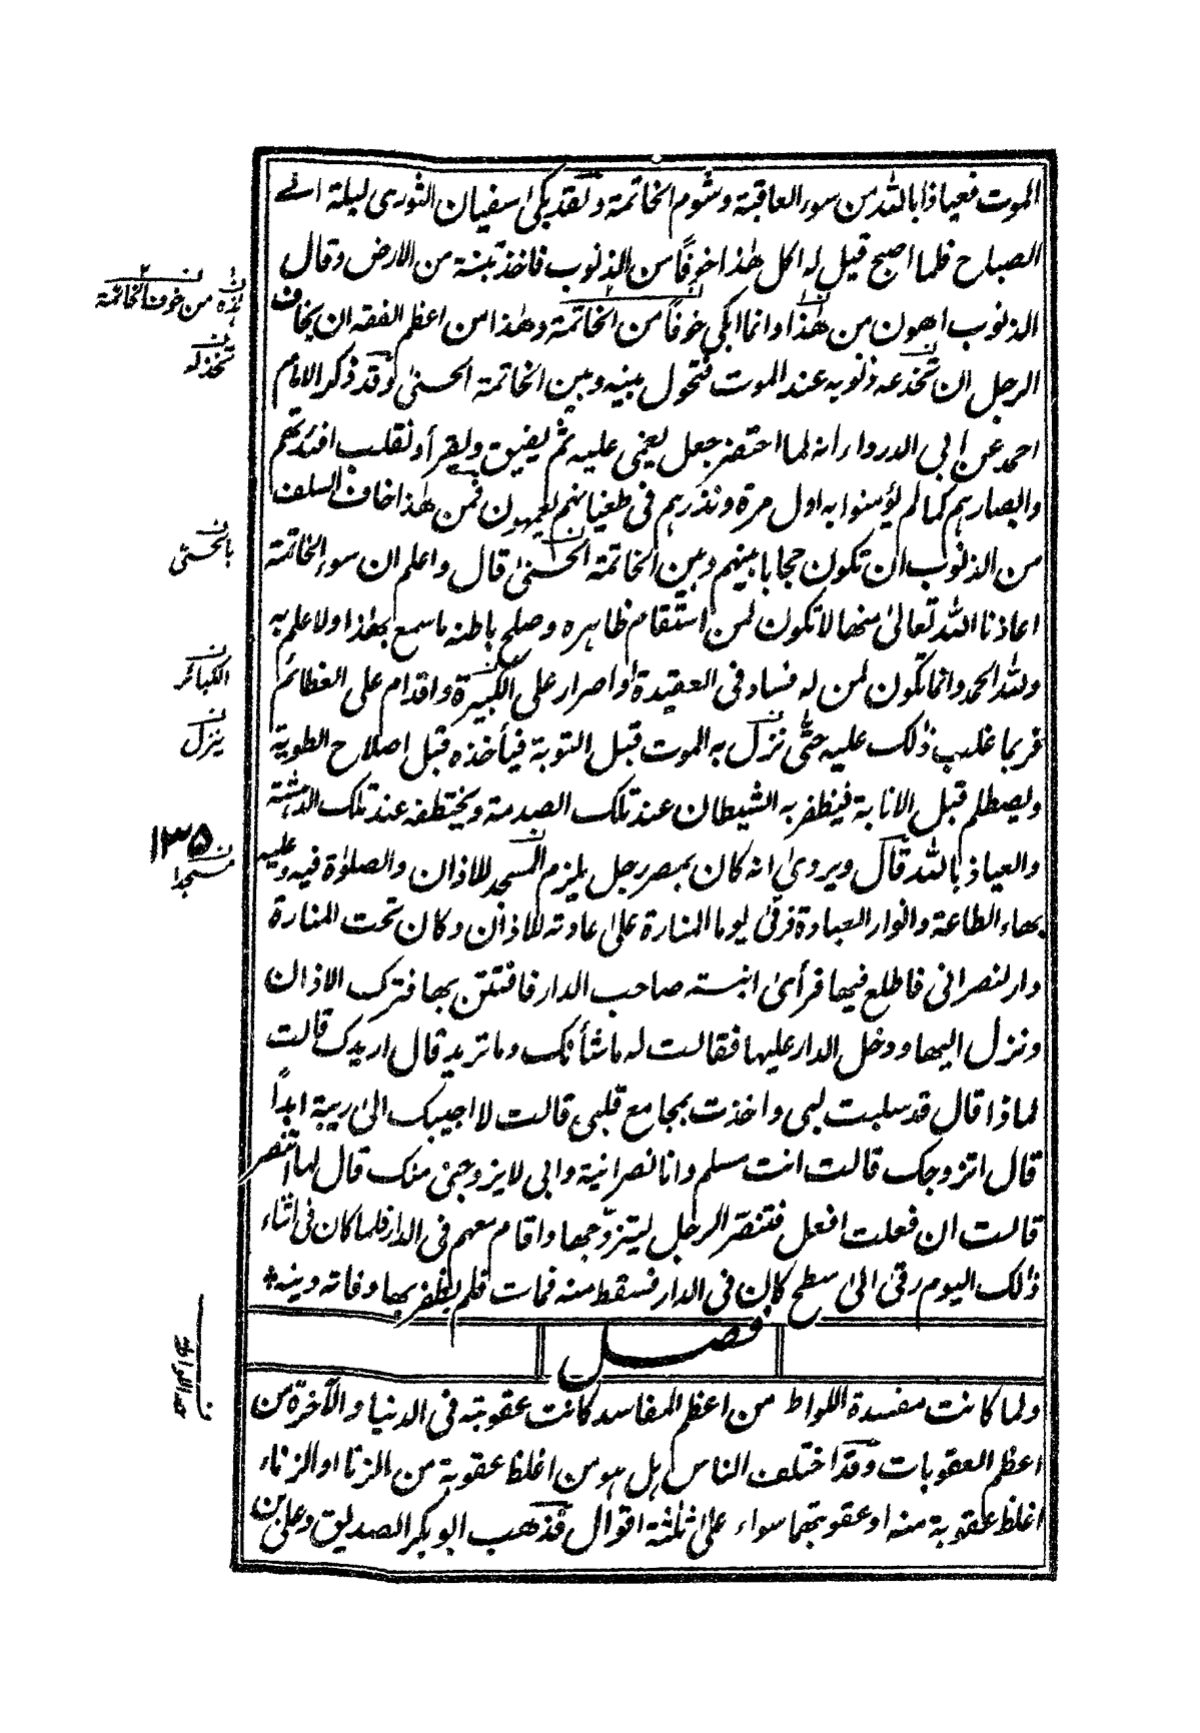 الموت فعياذا بالله من سوء العاقبة وشوم الخاتمة ولقد بكى سفيان الثورى ليلة الے
الصباح فلما اصبح قيل له اكل هذا خوفا من الذنوب فاخذ تبنة من الارض وقال
الذنوب اهون من هذا وانما ابكى خوفاً من الخاتمة وهذا من اعظم الفقه ان يخاف
الرجل ان تخدعه ذنوبه عند الموت فتحول بينه وبين الخاتمة الحسنىٰ وقد ذكر الامام
احمد عن ابى الدرداء انه لما احتضر جعل يغمى عليه ثم يفيق ويقرأ ونقلب افئدتهم
وابصارهم كما لم يؤمنوا به اول مرة ونذرهم فى طغيانهم يعمهون فمن هذا خاف السلف
من الذنوب ان تكون حجابا بينهم وبين الخاتمة الحسنىٰ قال واعلم ان سوء الخاتمة
اعاذنا الله تعالىٰ منها لا تكون لمن استقام ظاهره وصلح باطنه ما سمع بهذا ولا علم به
ولله الحمد وانما تكون لمن له فساد فى العقيدة او اصرار على الكبيرة واقدام على العظائم
فربما غلب ذلك عليه حتّٰى نزل به الموت قبل التوبة فيأخذه قبل اصلاح الطوية
ويصطلم قبل الانابة فيظفر به الشيطان عند تلك الصدمة ويختطفه عند تلك الدهشة
والعياذ بالله قال ويروىٰ انه كان بمصر رجل يلزم المسجد للاذان والصلوٰة فيه وعليه
بهاء الطاعة وانوار العبادة فرقىٰ يوما المنارة علىٰ عادته للاذان وكان تحت المنارة
دار لنصرانى فاطلع فيها فرأىٰ ابنته صاحب الدار فافتتن بها فترك الاذان
ونزل اليها ودخل الدار عليها فقالت له ما شأنك وما تريد قال اريدك قالت
لماذا قال قد سلبت لبى واخذت بمجامع قلبى قالت لا اجيبك الىٰ ريبة ابداً
قال اتزوجك قالت انت مسلم وانا نصرانية وابى لا يزوجنى منك قال لها اتنصر
قالت ان فعلت افعل فتنصّر الرجل ليتزوّجها واقام معهم فى الدار فلما كان فى اثناء
ذلك اليوم رقىٰ الىٰ سطح كان فى الدار فسقط منه فمات فلم يظفر بها وفاته دينه
فصل
ولما كانت مفسدة اللواط من اعظم المفاسد كانت عقوبته فى الدنيا والآخرة من
اعظم العقوبات وقد اختلف الناس هل هو من اغلظ عقوبة من الزنا او الزناء
اغلظ عقوبة منه او عقوبتهما سواء علىٰ ثلثة اقوال فذهب ابوبكر الصديق وعلى بن
من خوف الخاتمة
تخذله
بالحسنى
الكبائر
ينزل
١٣٥
مسجدا